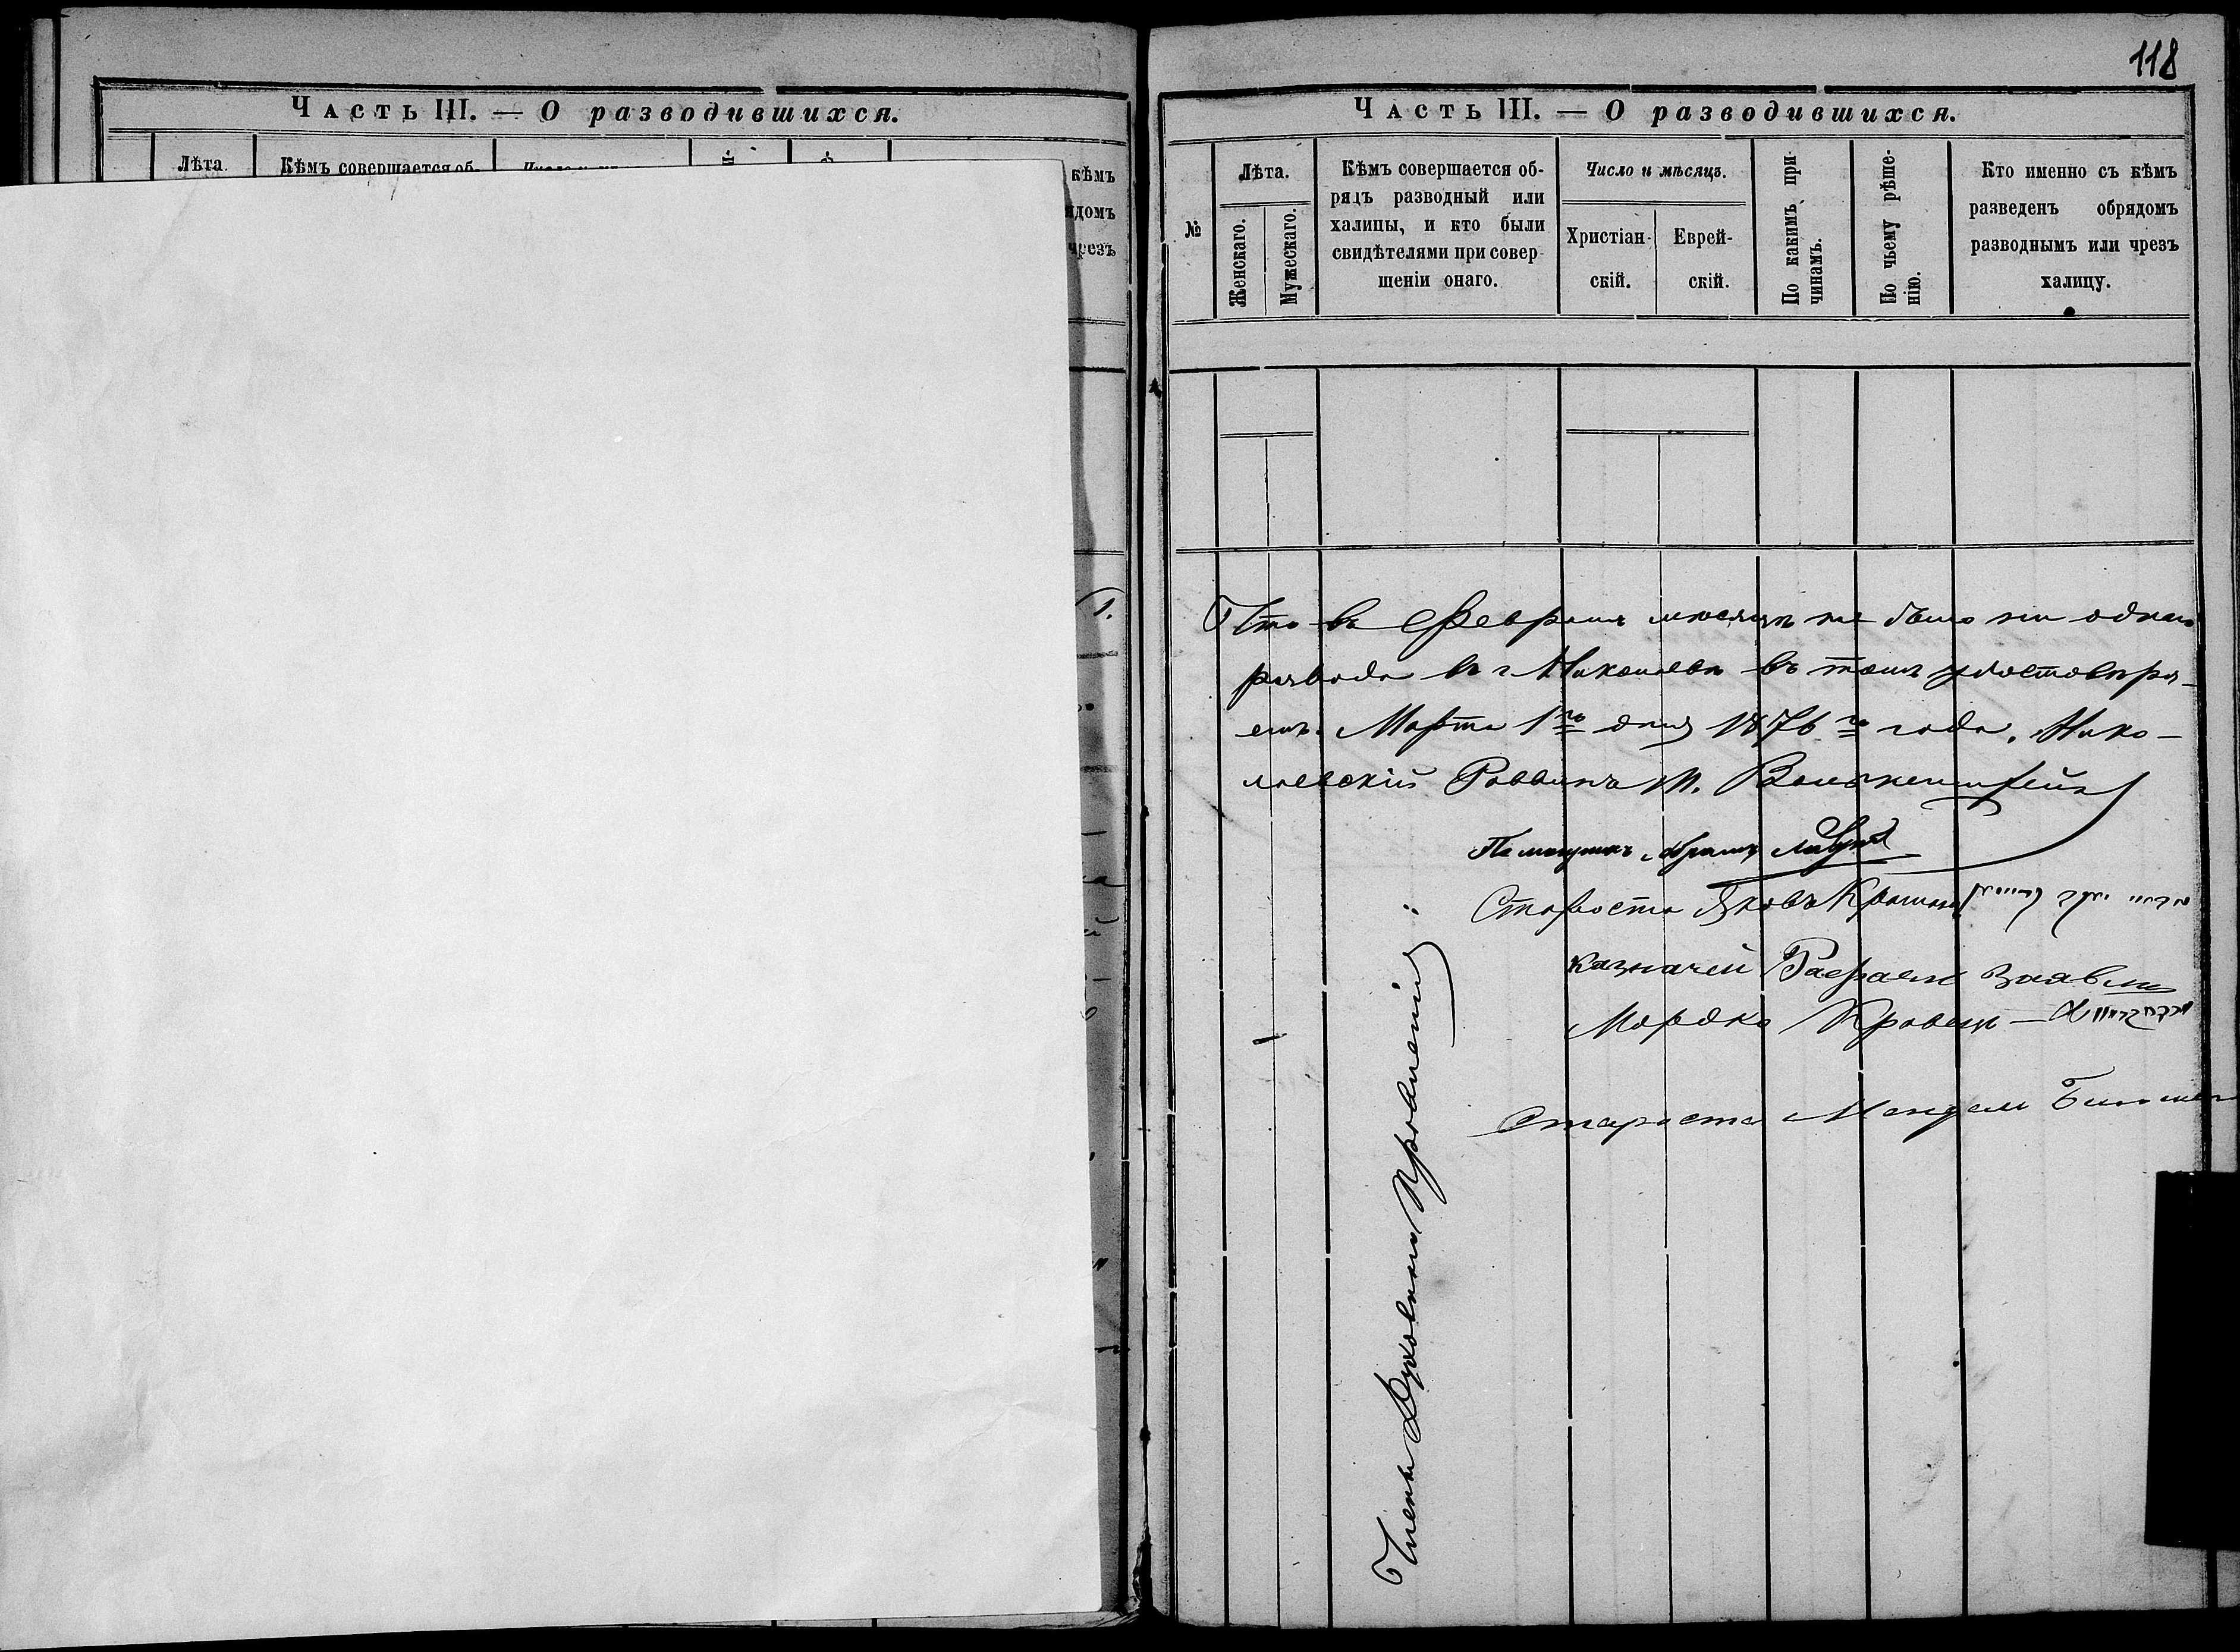 118
Часть III. — О разводившихся.
Лѣта.
Кѣмъ совершается об-
кѣмъ
чрезъ
Часть III. — О разводившихся.
№
Лѣта.
Женскаго.
Мужескаго.
Кѣмъ совершается об-
рядъ разводный или
халицы, и кто были
свидѣтелями при совер-
шеніи онаго.
Число и мѣсяцъ.
Христіан-
скій.
Еврей-
скій.
По какимъ при-
чинамъ.
По чьему рѣше-
нію.
Кто именно съ кѣмъ
разведенъ обрядомъ
разводнымъ или чрезъ
халицу.
Что въ Февралѣ мѣсяцѣ не было ни одного
развода въ г Николаевѣ въ томъ удостовѣря-
емъ. Марта 1го дня 1876го года. Нико-
лаевскій Раввинъ М.
Абрамъ
Староста Яковъ
казначей Рафаелъ
Мордко Кравецъ —
Староста Мендель
Члены Духовнаго Правленія: